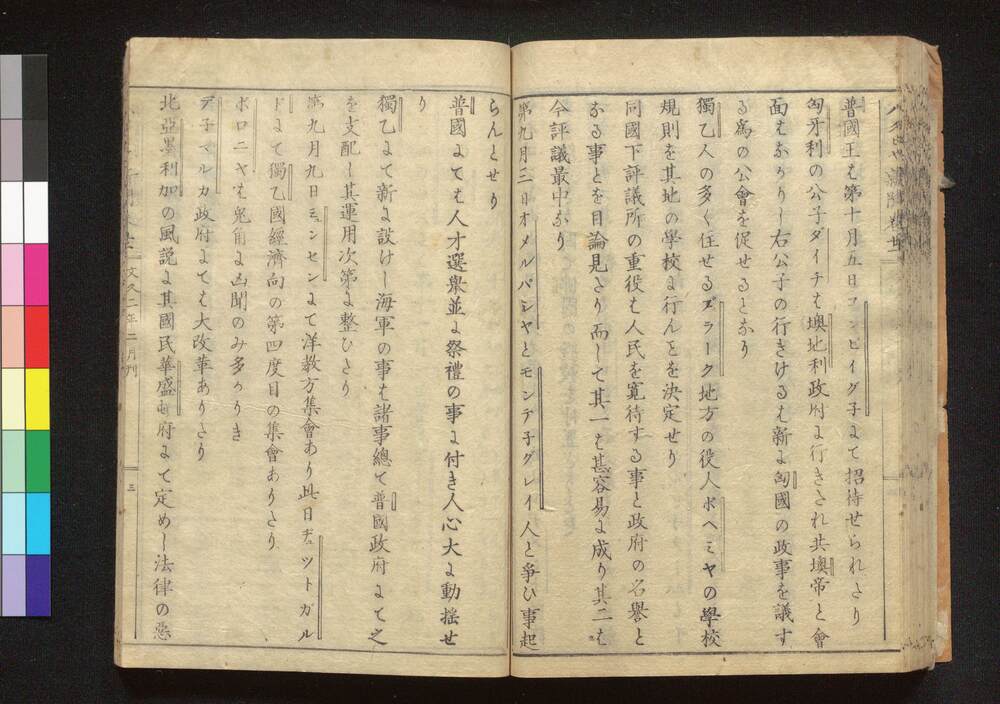 普國王も第十月五日コンピイグ子にて招待せられたり
匈牙利の公子ダイチも墺地利政府に行きされ共墺帝と會
面もなかりし右公子の行きけるも新に匈國の政事を議す
る爲の公會を促せるとなり
獨乙人の多く住せるプラーク地方の役人ボヘミヤの學校
規則を其地の學校に行んとを決定せり
同國下評議所の重役も人民を寛待する事と政府の名譽と
なる事とを目論見たり而して其一も甚容易に成り其二も
今評議最中なり
第九月三日オメルパシヤとモンテ子グレイ人と爭ひ事起
らんとせり
普國にても人才選擧並に祭禮の事に付き人心大に動揺せ
り
獨乙にて新に設けし海軍の事も諸事總て普國政府にて之
を支配し其運用次第に整ひたり
第九月九日ミュンセンにて洋教方集會あり此日ヂュツトガル
ドにて獨乙國經濟向の第四度目の集會ありたり
ポロニヤも兎角に凶聞のみ多かりき
デ子マルカ政府にても大改革ありたり
北亞墨利加の風説に其國民華盛頓府にて定めし法律の惡
文久二年二月刊
三